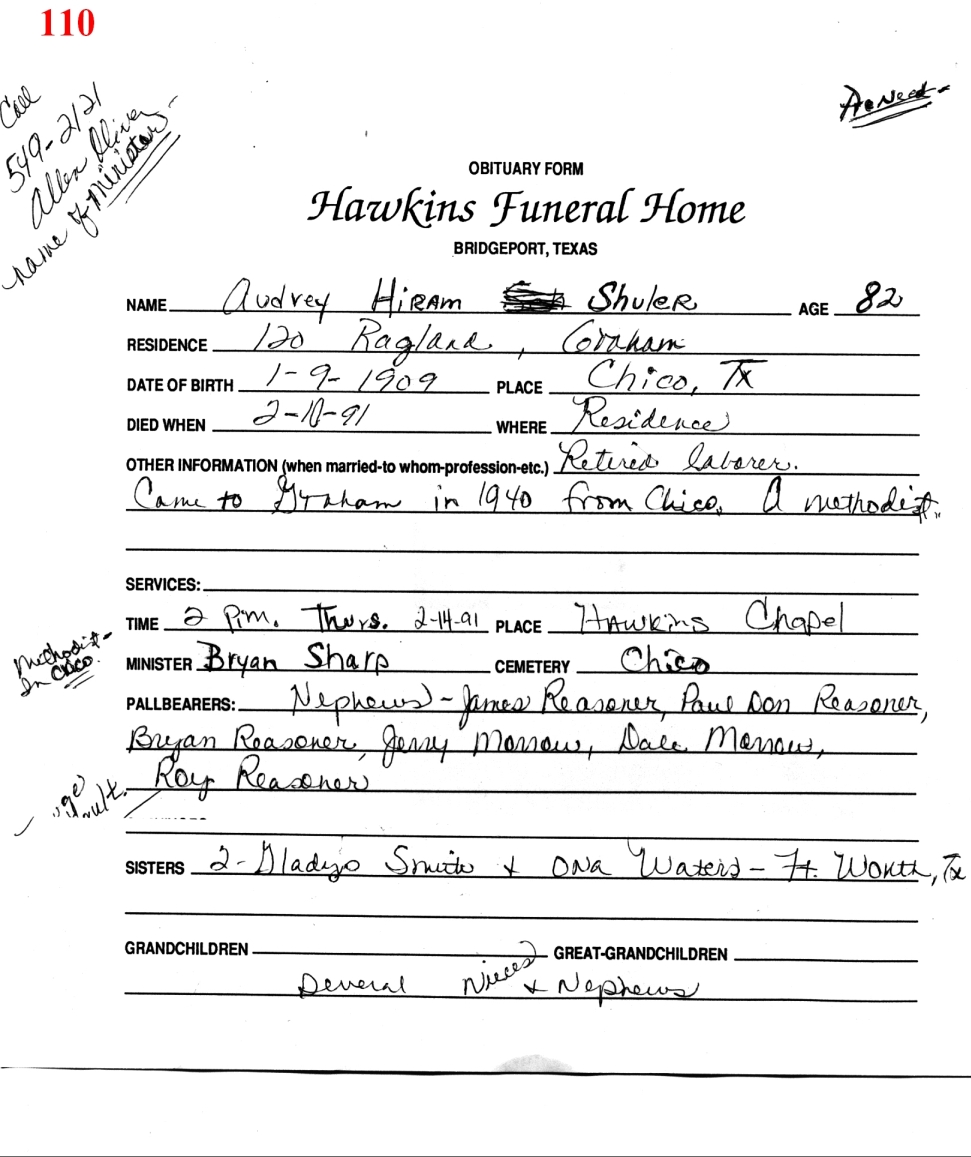 110
Call
549-2121
Allen
name of Minister
As Need -
OBITUARY FORM
Hawkins Funeral Home
BRIDGEPORT, TEXAS
NAME Audrey Hiram Shuler AGE 82
RESIDENCE 120 Ragland, Graham
DATE OF BIRTH 1-9-1909 PLACE Chico, Tx
DIED WHEN 2-10-91 WHERE Residence
OTHER INFORMATION (when married-to whom-profession-etc.) Retired laborer.
Came to Graham in 1940 from Chico. A methodist.
SERVICES:
TIME 2 P.m. Thurs. 2-14-91 PLACE Hawkins Chapel
Methodist -
In Chico.
MINISTER Bryan Sharp CEMETERY Chico
PALLBEARERS: Nephews - James Reasoner, Paul Don Reasoner,
Bryan Reasoner, Jerry Morrow, Dale Morrow,
Roy Reasoner
SISTERS 2 - Gladys Smith & Ona Waters - Ft. Worth, Tx
GRANDCHILDREN GREAT-GRANDCHILDREN
Several Nieces & Nephews